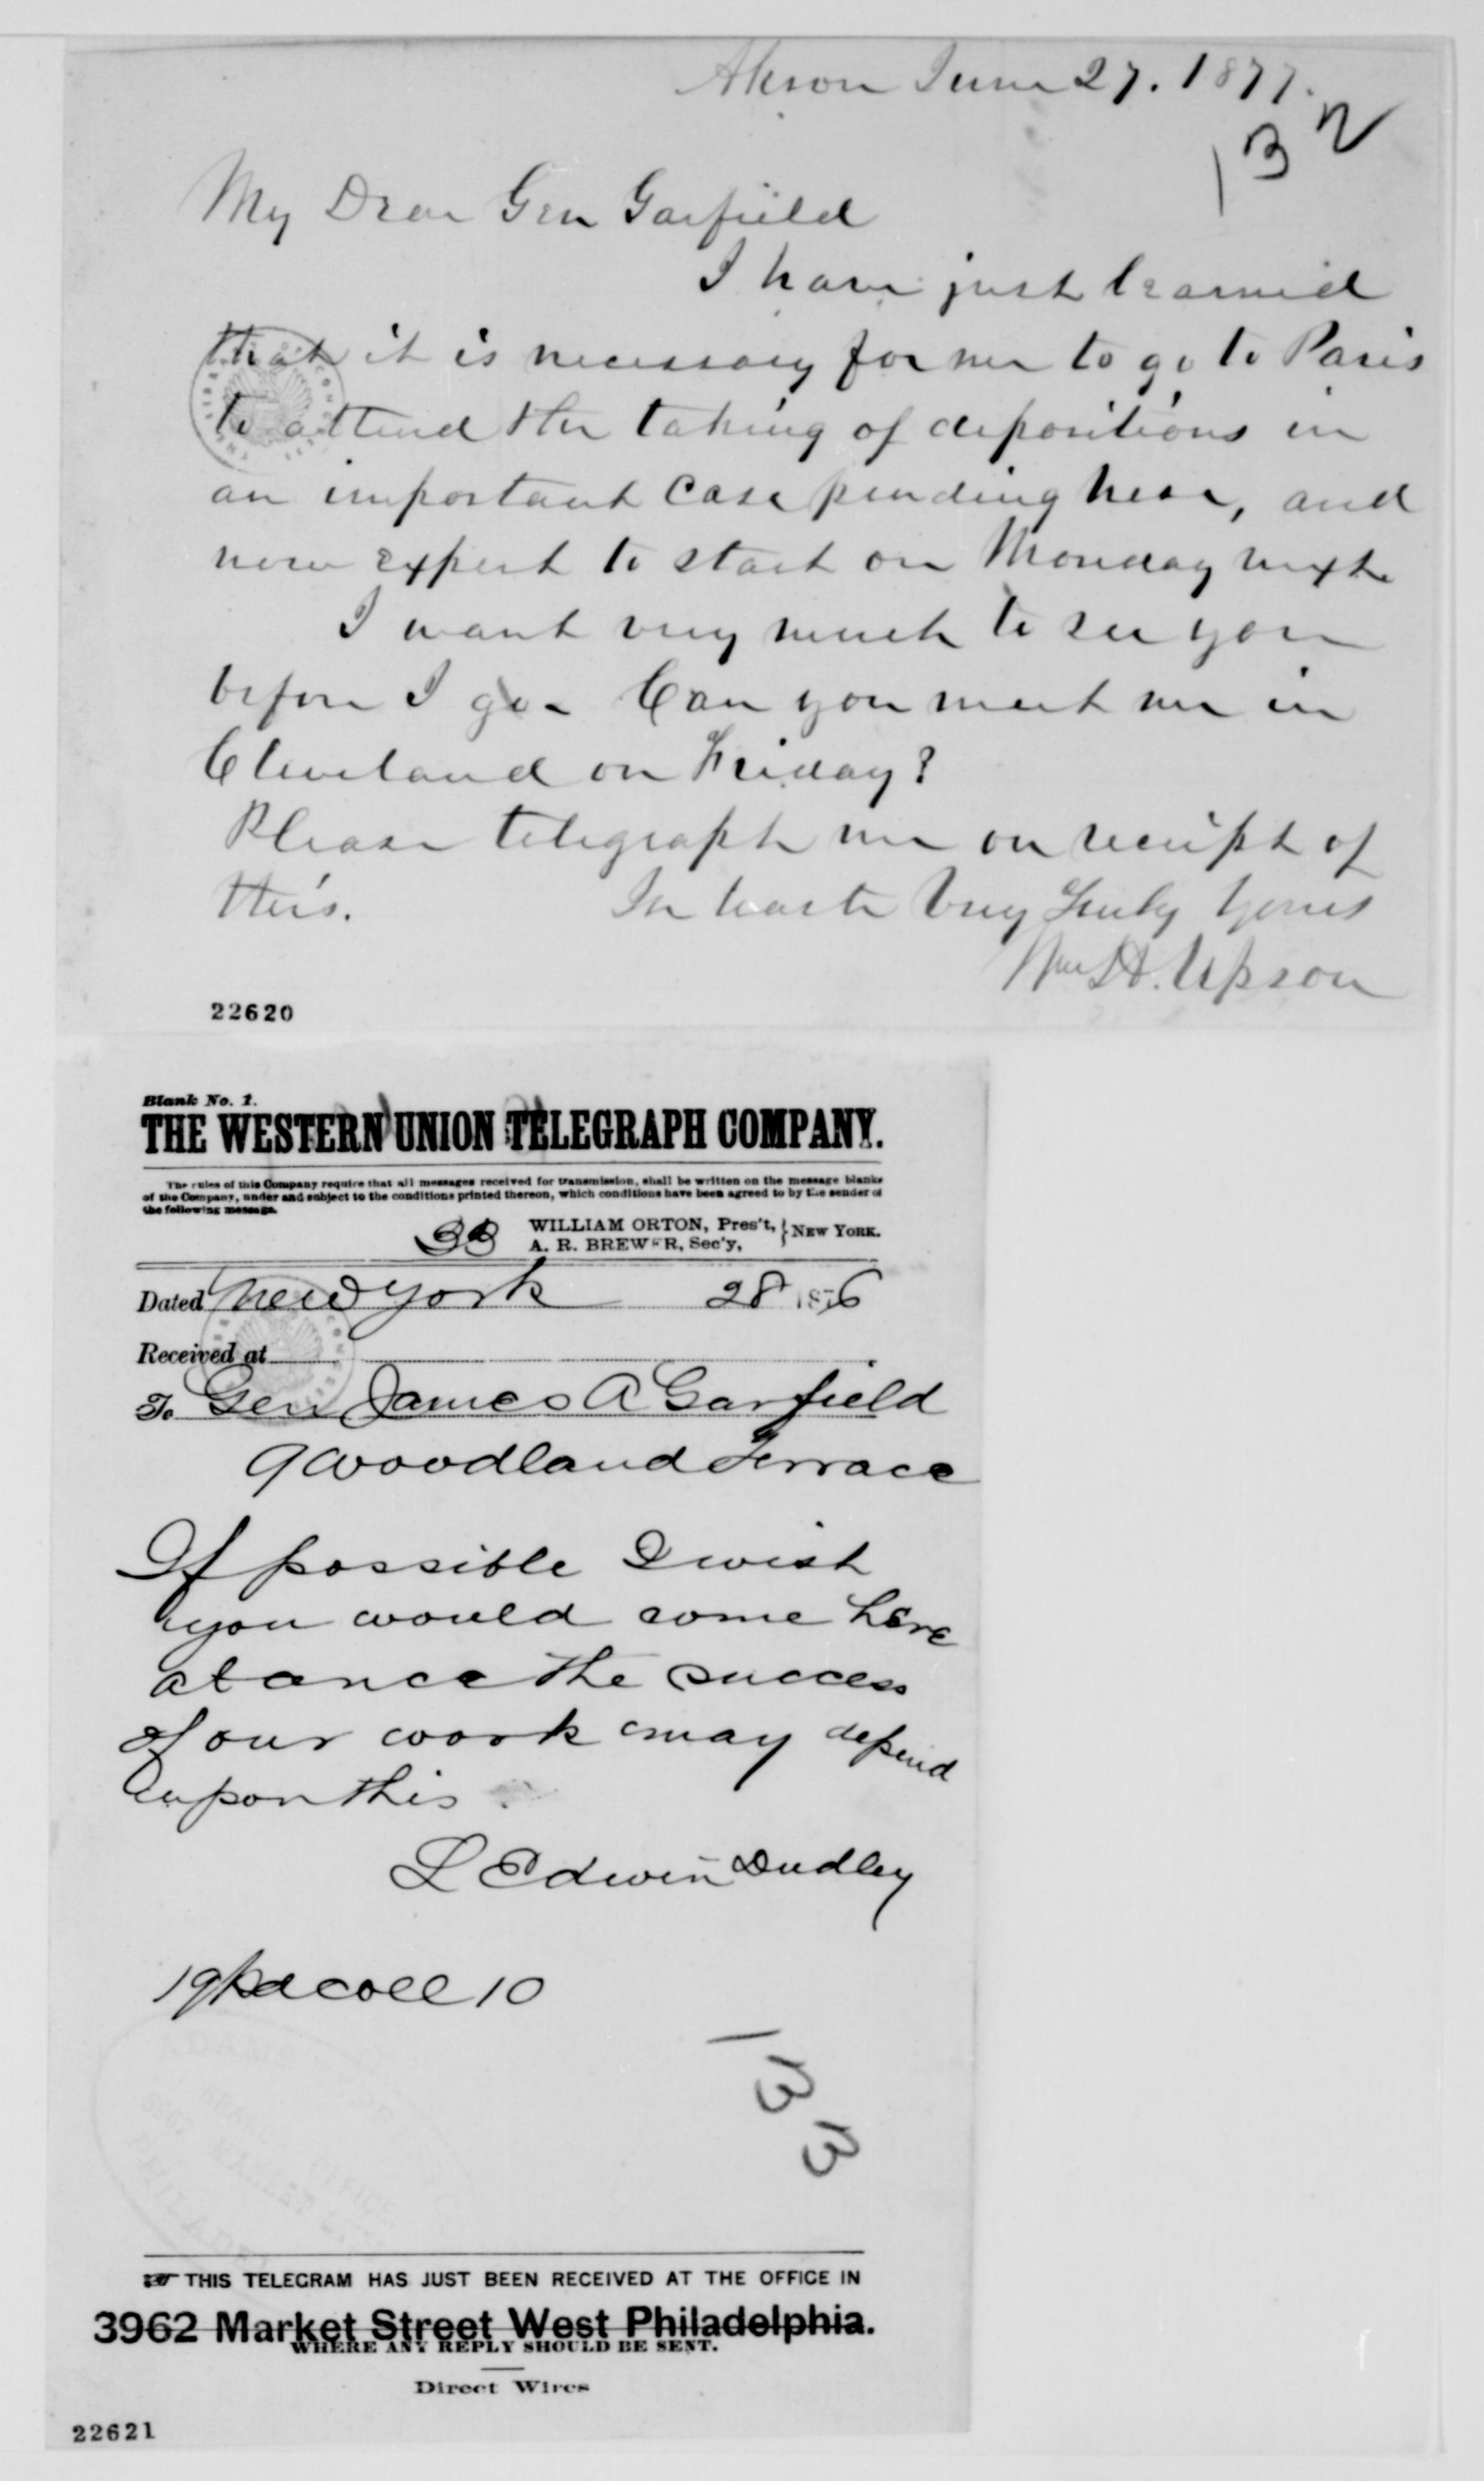 Akron June 27. 1877.
132
My Dear Gen Garfield
I have just learned
that it is necessary for me to go to Paris
to attend the taking of depositions in
an important case pending here, and
now expect to start on Monday next.
I want very much to see you
before I go. Can you meet me in
Cleveland on Friday?
Please telegraph me on receipt of
this. In haste Very Truly Yours
Wm H. Upson
22620
Blank No. 1.
THE WESTERN UNION TELEGRAPH COMPANY.
The rules of this Company require that all messages received for transmission, shall be written on the message blanks
of the Company, under and subject to the conditions printed thereon, which conditions have been agreed to by the sender of
the following message.
33 WILLIAM ORTON, Pres't, } NEW YORK.
A. R. BREWER, Sec'y,
Dated New York 28 1876
Received at
To Gen James A Garfield
9 Woodland Terrace
If possible I wish
you would come here
at once the success
of our work may depend
upon this
L Edwin Dudley
19 pd coll 10
133
THIS TELEGRAM HAS JUST BEEN RECEIVED AT THE OFFICE IN
3962 Market Street West Philadelphia.
WHERE ANY REPLY SHOULD BE SENT.
Direct Wires
22621